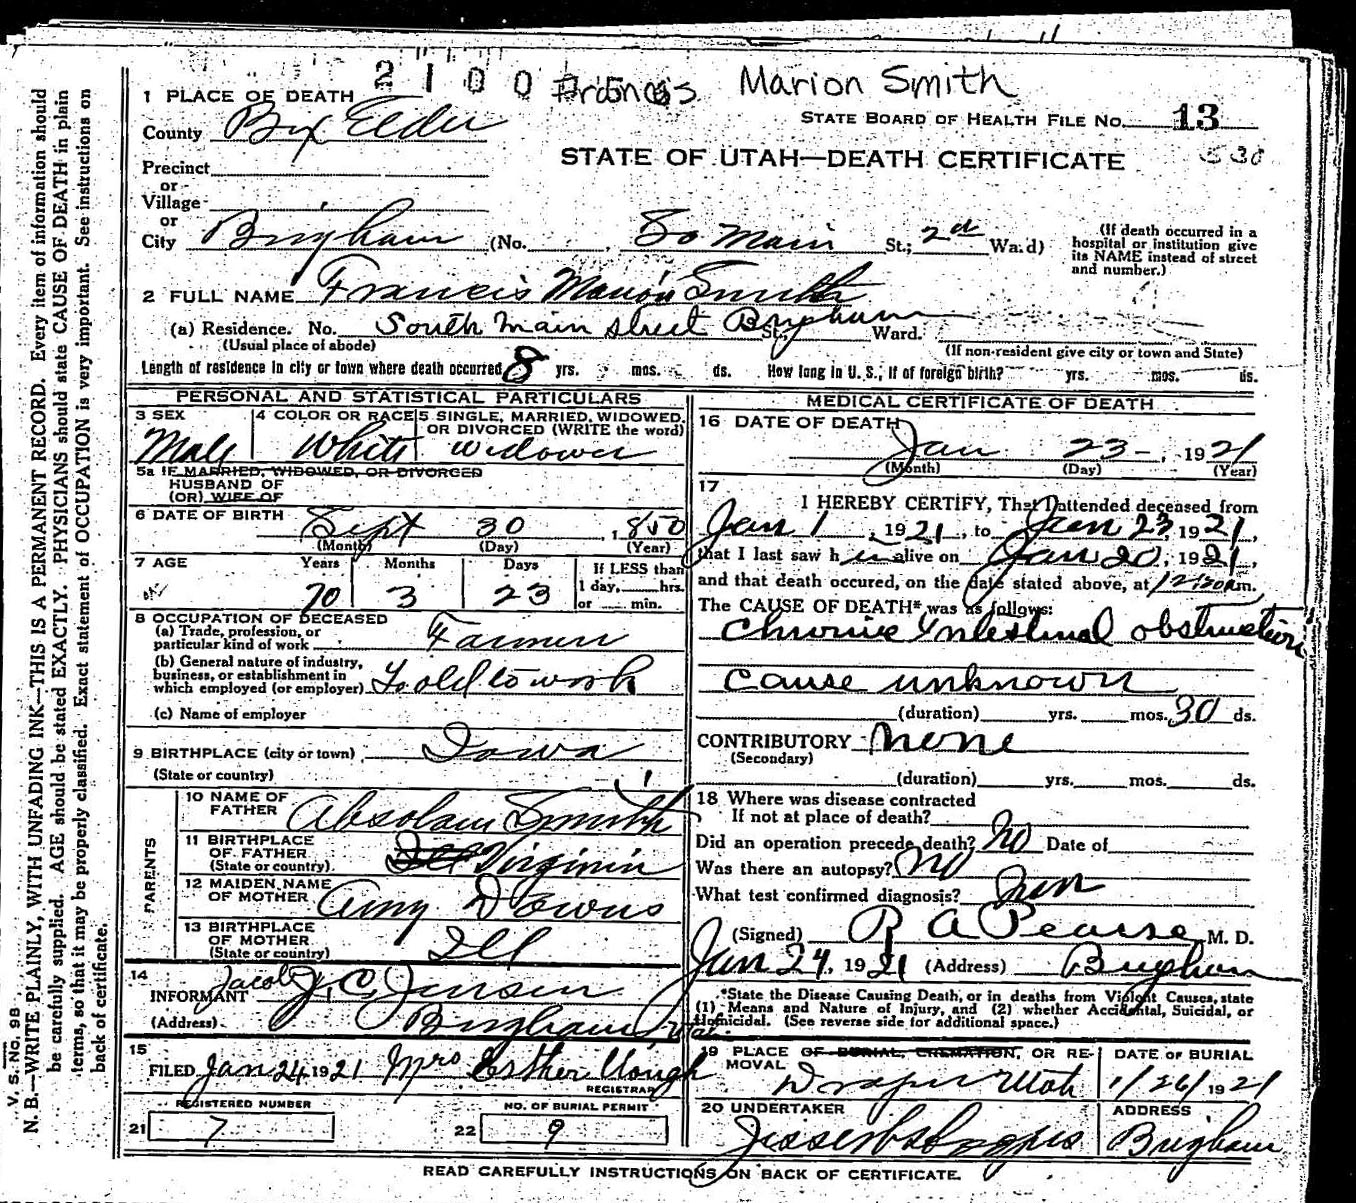 2 1 0 0 Francis Marion Smith
1 PLACE OF DEATH
County Box Elder
STATE BOARD OF HEALTH FILE NO. 13
530
Precinct
STATE OF UTAH—DEATH CERTIFICATE
or
Village
or
City Brigham (No. , So Main St.; 2nd Wa.d)
(If death occurred in a hospital or institution give its NAME instead of street and number.)
2 FULL NAME Francis Marion Smith
(a) Residence. No. South Main street Brigham St., Ward.
(Usual place of abode)
(If non-resident give city or town and State)
Length of residence in city or town where death occurred 8 yrs. mos. ds. How long in U. S., if of foreign birth? yrs. mos. ds.
PERSONAL AND STATISTICAL PARTICULARS
3 SEX Male
4 COLOR OR RACE White
5 SINGLE, MARRIED, WIDOWED, OR DIVORCED (WRITE the word) widower
5a IF MARRIED, WIDOWED, OR DIVORCED
HUSBAND OF
(OR) WIFE OF
6 DATE OF BIRTH Sept 30, 1850
(Month) (Day) (Year)
7 AGE Years Months Days If LESS than
1 day, hrs.
70 3 23 or min.
8 OCCUPATION OF DECEASED
(a) Trade, profession, or
particular kind of work Farmer
(b) General nature of industry,
business, or establishment in
which employed (or employer) To old to work
(c) Name of employer
9 BIRTHPLACE (city or town) Iowa
(State or country)
PARENTS
10 NAME OF
FATHER Absolam Smith
11 BIRTHPLACE
OF FATHER Ill Virginia
(State or country)
12 MAIDEN NAME
OF MOTHER Amy Downs
13 BIRTHPLACE
OF MOTHER Ill
(State or country)
14
INFORMANT Jacob J. C. Jensen
(Address) Brigham, Utah
15
FILED Jan 24 1921 Mrs Esther Clough
REGISTRAR
REGISTERED NUMBER NO. OF BURIAL PERMIT
21 7 22 9
MEDICAL CERTIFICATE OF DEATH
16 DATE OF DEATH
Jan 23—, 1921
(Month) (Day) (Year)
17
I HEREBY CERTIFY, That I attended deceased from
Jan 1, 1921, to Jan 23, 1921,
that I last saw h im alive on Jan 20, 1921,
and that death occured, on the date stated above, at 12:30 a m.
The CAUSE OF DEATH* was as follows:
Chronic Intestinal obstruction
cause unknown
(duration) yrs. mos. 30 ds.
CONTRIBUTORY none
(Secondary)
(duration) yrs. mos. ds.
18 Where was disease contracted
If not at place of death?
Did an operation precede death? No Date of
Was there an autopsy? No
What test confirmed diagnosis?
(Signed) R A Pearse M. D.
Jan 24, 1921 (Address) Brigham
*State the Disease Causing Death, or in deaths from Violent Causes, state
(1) Means and Nature of Injury, and (2) whether Accidental, Suicidal, or
Homicidal. (See reverse side for additional space.)
19 PLACE OF BURIAL, CREMATION, OR RE-
MOVAL Draper Utah
DATE OF BURIAL
1/26/1921
20 UNDERTAKER
ADDRESS
Brigham
READ CAREFULLY INSTRUCTIONS ON BACK OF CERTIFICATE.
V. S. No. 98
N. B.—WRITE PLAINLY, WITH UNFADING INK—THIS IS A PERMANENT RECORD. Every item of information should
be carefully supplied. AGE should be stated EXACTLY. PHYSICIANS should state CAUSE OF DEATH in plain
terms, so that it may be properly classified. Exact statement of OCCUPATION is very important. See instructions on
back of certificate.